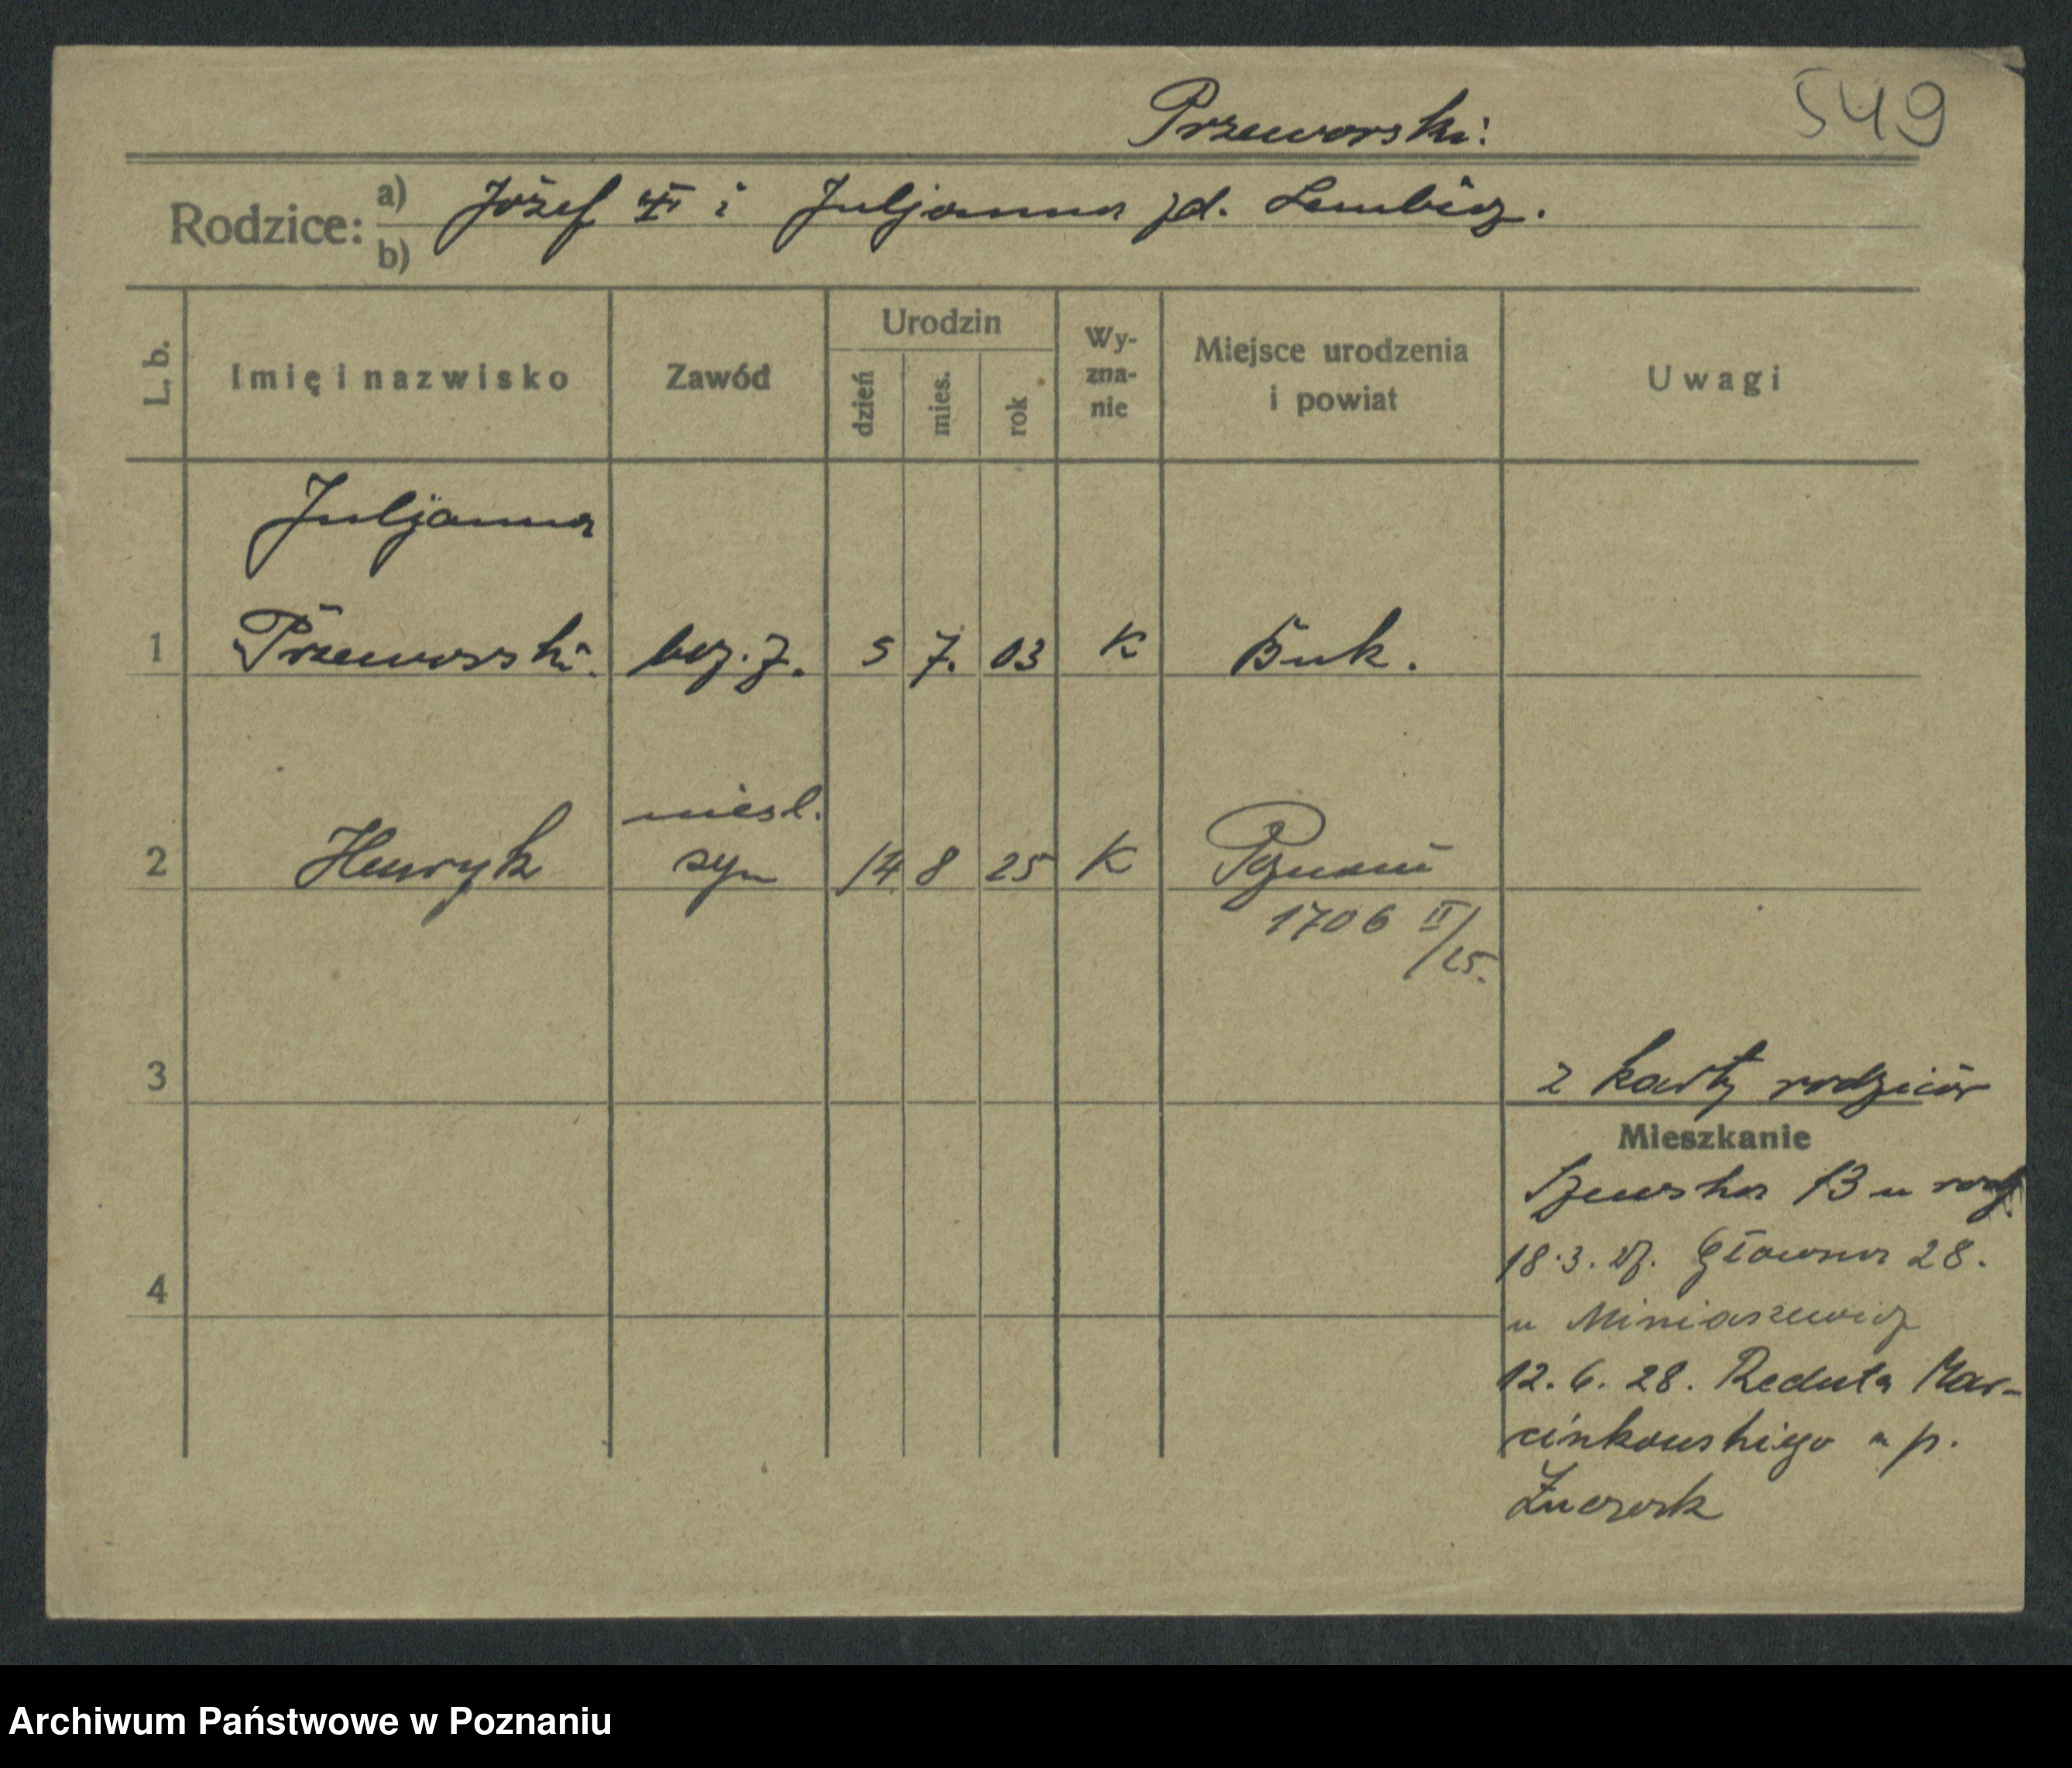 549
Przeworski.
Rodzice: a) Józef II i Juljanna zd. Lembicz.
b)
L. b.
Imię i nazwisko
Zawód
Urodzin
dzień
mies.
rok
Wy-
zna-
nie
Miejsce urodzenia
i powiat
Uwagi
Juljanna
1 Przeworski. bez. z. 5 7. 03 K Buk.
nieśl.
2 Henryk syn 14 8 25 K Poznań
1706 II/25.
3
z karty rodziców
Mieszkanie
Szewska 13 u rodz.
18.3. 27. Główna 28.
4
u Miniaszewicz
12. 6. 28. Reduta Mar-
cinkowskiego u p.
Archiwum Państwowe w Poznaniu